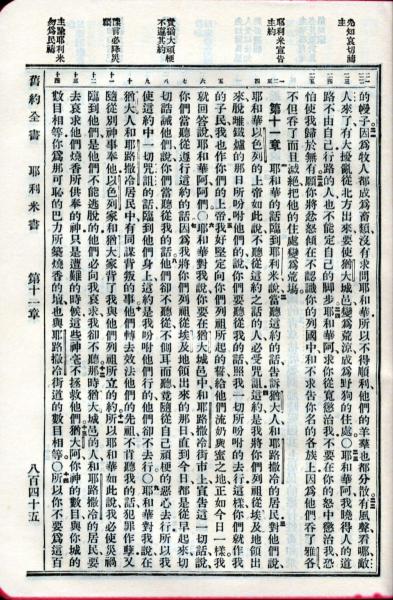 先知哀切禱
主
耶利米宣告
主約
責猶大頑梗
不遵其約
陳言必降災
罰
主諭耶利米
勿為民禱
的幔子因為牧人都成為畜類沒有求問耶和華所以不得順利他們的羊羣也都分散有風聲看哪敵
人來了有大擾亂從北方出來要使猶大城邑變為荒涼成為野狗的住處○耶和華阿我曉得人的道
路不由自己行路的人也不能定自己的腳步耶和華阿求你從寬懲治我不要在你的怒中懲治我恐
怕使我歸於無有願你將忿怒傾在不認識你的列國中和不求告你名的各族上因為他們吞了雅各
不但吞了而且滅絕把他的住處變為荒場
第十一章 耶和華的話臨到耶利米說當聽這約的話告訴猶大人和耶路撒冷的居民對他們說
耶和華以色列的上帝如此說不聽從這約之話的人必受咒詛這約是我將你們列祖從埃及地領出
來脫離鐵爐的那日所吩咐他們的說你們要聽從我的話照我一切所吩咐的去行這樣你們就作我
的子民我也作你們的上帝我好堅定向你們列祖所起的誓給他們流奶與蜜之地正如今日一樣我
就回答說耶和華阿阿們○耶和華對我說你要在猶大城邑中和耶路撒冷街市上宣告這一切話說
你們當聽從遵行這約的話因為我將你們列祖從埃及地領出來的那日直到今日都是從早起來切
切誥誡他們說你們當聽從我的話他們卻不聽從不側耳而聽竟隨從自己頑梗的惡心去行所以我
使這約中一切咒詛的話臨到他們身上這約是我吩咐他們行的他們卻不去行○耶和華對我說在
猶大人和耶路撒冷居民中有同謀背叛的事他們轉去效法他們的先祖不肯聽我的話犯罪作孽又
隨從別神事奉他以色列家和猶大家背了我與他們列祖所立的約所以耶和華如此說我必使災禍
臨到他們是他們不能逃脫的他們必向我哀求我卻不聽那時猶大城邑的人和耶路撒冷的居民要
去哀求他們燒香所供奉的神只是遭難的時候這些神毫不拯救他們猶大阿你神的數目與你城的
數目相等你為那可恥的巴力所築燒香的壇也與耶路撒冷街道的數目相等○所以你不要為這百
舊約全書 耶利米書 第十一章 八百四十五